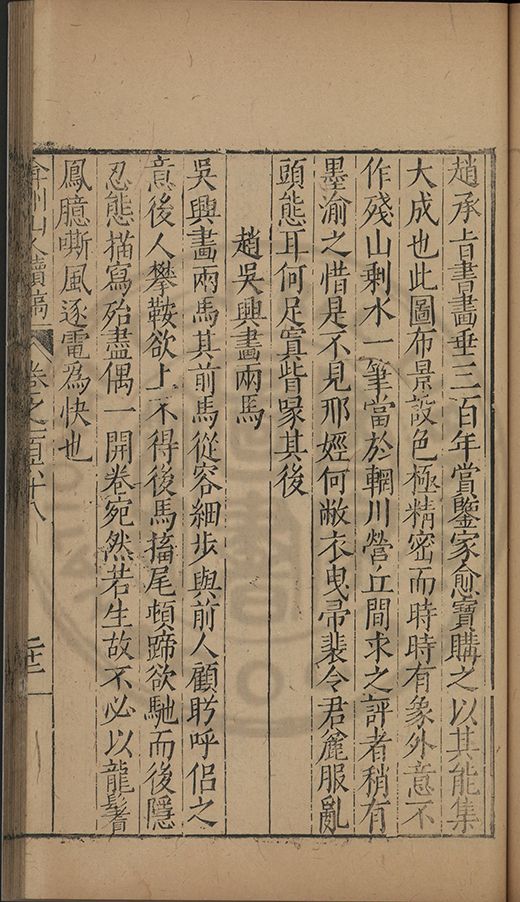 趙承旨書畫垂三百年賞鑒家愈寶購之以其能集
大成也此圖布景設色極精密而時時有象外意不
作殘山剩水一筆當於輞川營丘間求之評者稍有
墨渝之惜是不見邢娙何敝衣曳帚裴令君麄服亂
頭態耳何足寘訾喙其後
趙吳興畫兩馬
吳興畫兩馬其前馬從容細步與前人顧盻呼侶之
意後人攀鞍欲上不得後馬搐尾頓蹄欲馳而後隱
忍態描寫殆盡偶一開卷宛然若生故不必以龍鬐
鳳臆嘶風逐電為快也
弇州山人續稿 卷之一百六十八